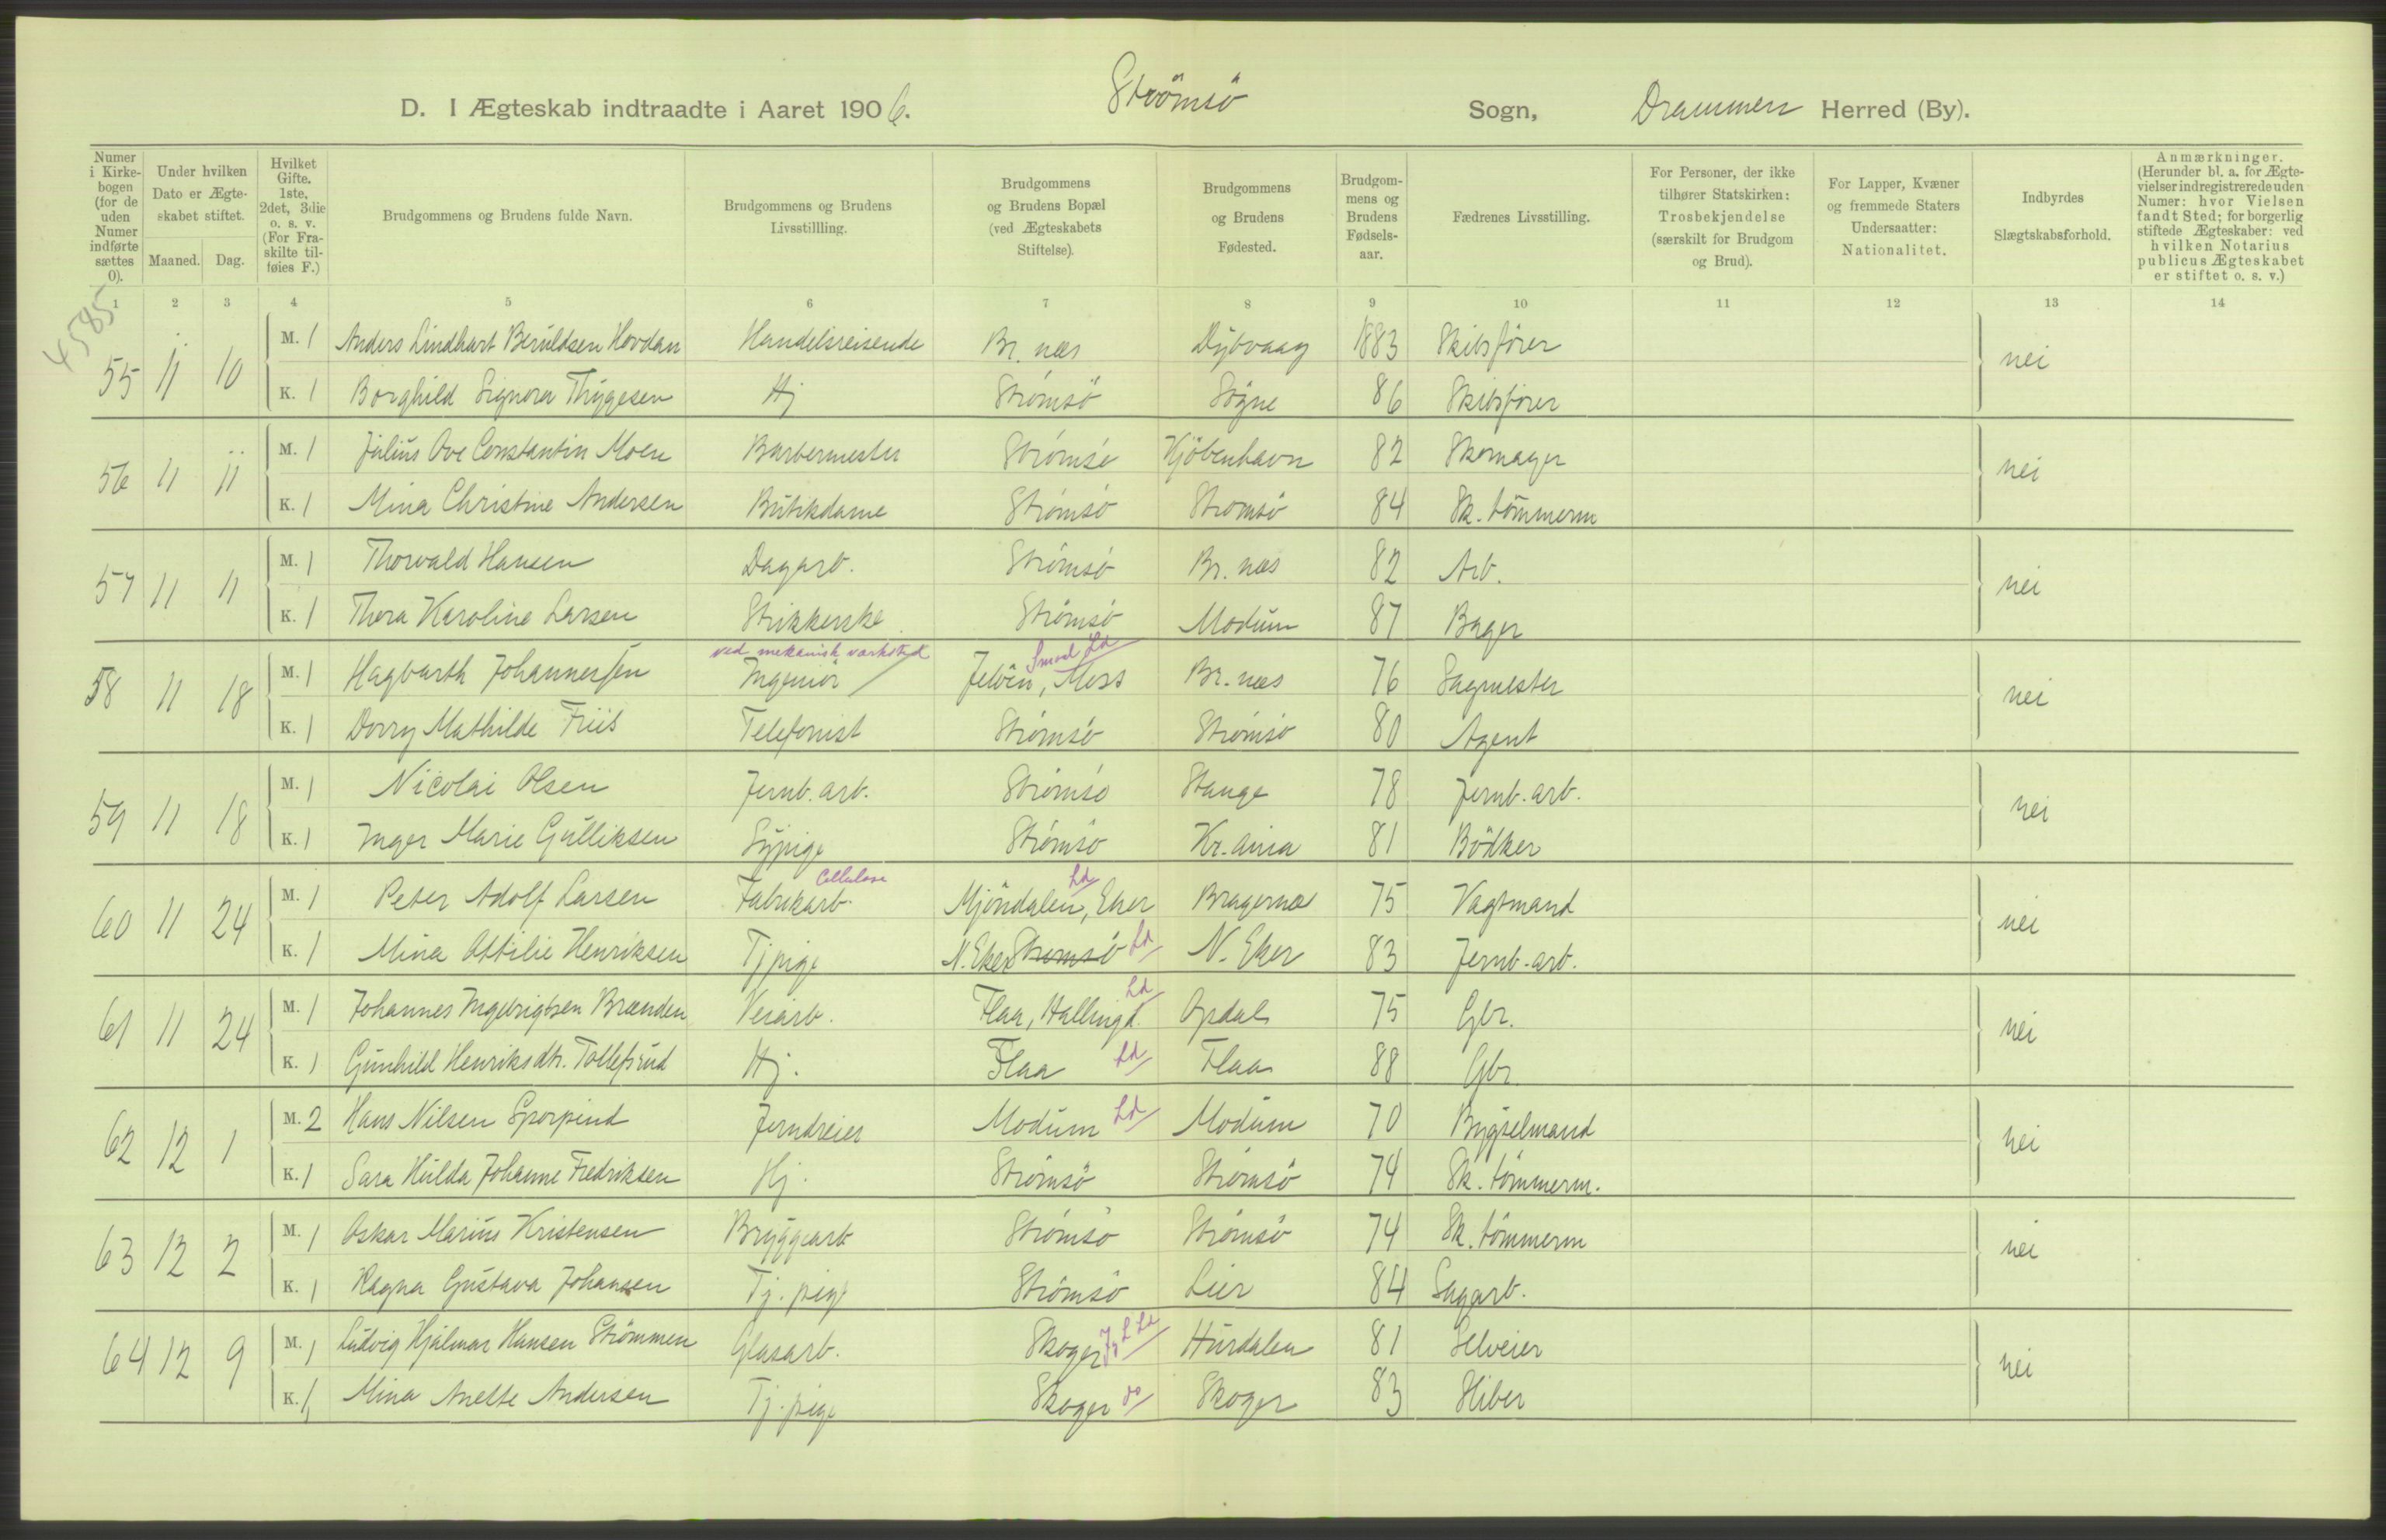 D. I Ægteskab indtraadte i Aaret 1906. Strömsö Sogn, Drammen Herred (By).
Numer i Kirkebogen (for de uden Numer indførte sættes 0).
Under hvilken Dato er Ægteskabet stiftet.
Maaned. Dag.
Hvilket Gifte. 1ste, 2det, 3die o. s. v. (For Fraskilte tilføies F.)
Brudgommens og Brudens fulde Navn.
Brudgommens og Brudens Livsstillling.
Brudgommens og Brudens Bopæl (ved Ægteskabets Stiftelse).
Brudgommens og Brudens Fødested.
Brudgommens og Brudens Fødselsaar.
Fædrenes Livsstilling.
For Personer, der ikke tilhører Statskirken: Trosbekjendelse (særskilt for Brudgom og Brud).
For Lapper, Kvæner og fremmede Staters Undersaatter: Nationalitet.
Indbyrdes Slægtskabsforhold.
Anmærkninger. (Herunder bl. a. for Ægtevielser indregistrerede uden Numer: hvor Vielsen fandt Sted; for borgerlig stiftede Ægteskaber: ved hvilken Notarius publicus Ægteskabet er stiftet o. s. v.)
1 2 3 4 5 6 7 8 9 10 11 12 13 14
4585
55 11 10 M. 1 Anders Lindhart Beruldsen Hovdan Handelsreisende Br. næs Dybvaag 1883 Skibsfører nei
K. 1 Borghild Signora Thygesen Hj Strömsö Sögne 86 Skibsfører
56 11 11 M. 1 Julius Ove Constantin Moen Barbermester Strömsö Kjöbenhavn 82 Skomager nei
K. 1 Mina Christine Andersen Butikdame Strömsö Strömsö 84 Sk. tömmerm
57 11 11 M. 1 Thorvald Hansen Dagarb. Strömsö Br. næs 82 Arb. nei
K. 1 Thora Karoline Larsen Strikkerske Strömsö Modum 87 Bager
ved mekanisk værksted Smed Ld
58 11 18 M. 1 Hagbarth Johannessen Ingeniör Jelöen, Moss Br. næs 76 Sagmester nei
K. 1 Dorry Mathilde Friis Telefonist Strömsö Strömsö 80 Agent
59 11 18 M. 1 Nicolai Olsen Jernb. arb. Strömsö Stange 78 Jernb. arb. nei
K. 1 Inger Marie Gulliksen Sypige Strömsö Kr. ania 81 Bödker
Cellulose Ld
60 11 24 M. 1 Peter Adolf Larsen Fabrikarb. Mjöndalen, Eker Bragernæs 75 Vagtmand nei
K. 1 Mina Ottilie Henriksen Tjpige N. Eker Strömsö Ld N. Eker 83 Jernb. arb.
61 11 24 M. 1 Johannes Ingebrigtsen Brænden Veiarb. Flaa, Hallingd. Ld Opdal 75 Gbr. nei
K. 1 Gunhild Henriksdtr. Tollefsrud Hj. Flaa Ld Flaa 88 Gbr
62 12 1 M. 2 Hans Nilsen Sporpind Jerndreier Modum Ld Modum 70 Bygselmand nei
K. 1 Sara Hulda Johanne Fredriksen Hj. Strömsö Strömsö 74 Sk. tömmerm.
63 12 2 M. 1 Oskar Marius Kristensen Bryggearb Strömsö Strömsö 74 Sk. tömmerm nei
K. 1 Ragna Gustava Johansen Tj. pige Strömsö Lier 84 Sagarb.
64 12 9 M. 1 Ludvig Hjalmar Hansen Strömmen Glasarb. Skoger Hurdalen 81 Selveier nei
K. 1 Mina Anette Andersen Tj. pige Skoger do Skoger 83 Sliber